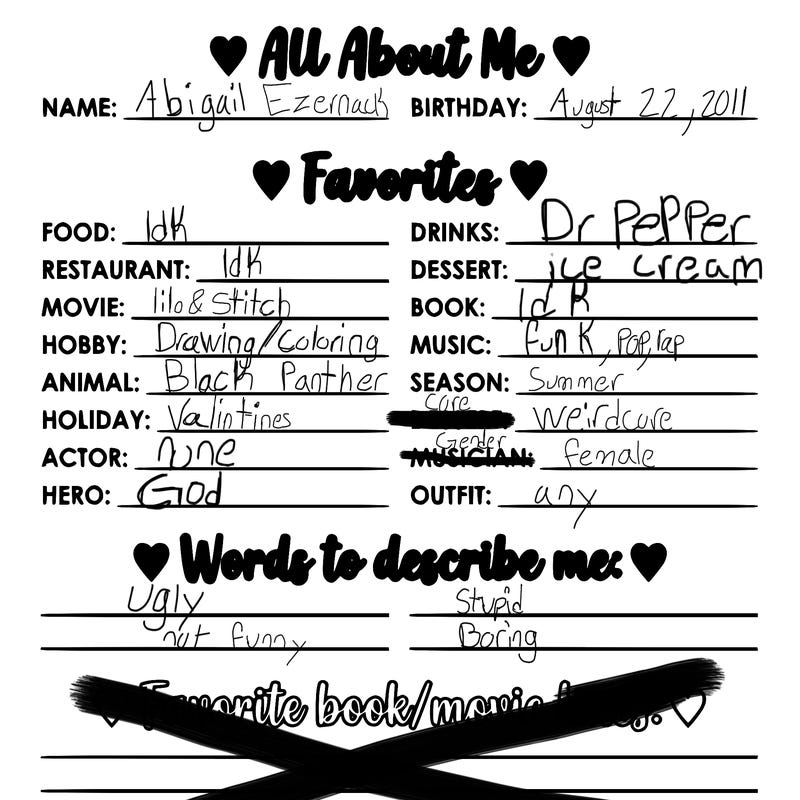 ♥ All About Me ♥
NAME: Abigail Ezernack BIRTHDAY: August 22, 2011
♥ Favorites ♥
FOOD: Idk DRINKS: Dr PePPer
RESTAURANT: Idk DESSERT: ice cream
MOVIE: lilo & Stitch BOOK: Idk
HOBBY: Drawing/Coloring MUSIC: funk, Pop, rap
ANIMAL: Black Panther SEASON: Summer
HOLIDAY: Valintines Core Weirdcore
ACTOR: none Gender MUSICIAN: female
HERO: God OUTFIT: any
♥ Words to describe me: ♥
Ugly Stupid
not funny Boring
Favorite book/movie